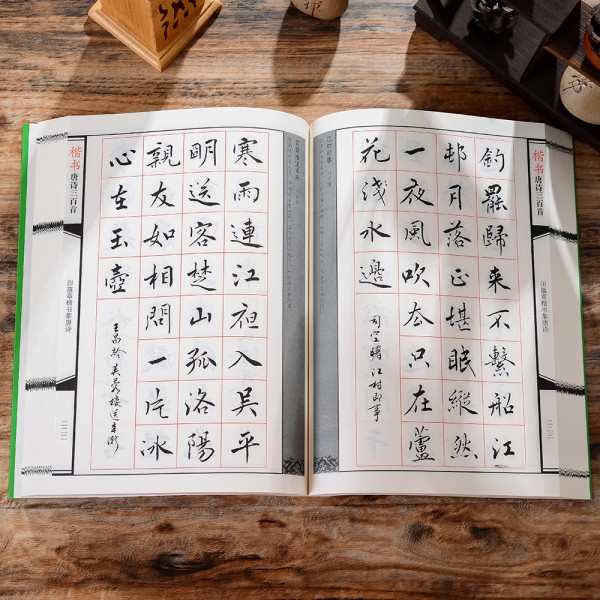 楷书 唐诗三百首
田蕴章楷书集唐诗
芙蓉楼送辛渐
寒雨連江夜入吳平
眀送客楚山孤洛陽
親友如相問一片冰
心在玉壺
王昌齡 芙蓉樓送辛漸
楷书 唐诗三百首
田蕴章楷书集唐诗
釣罷歸來不繫船江
邨月落正堪眠縱然
一夜風吹去只在蘆
花淺水邊
司空曙 江村即事
江村即事